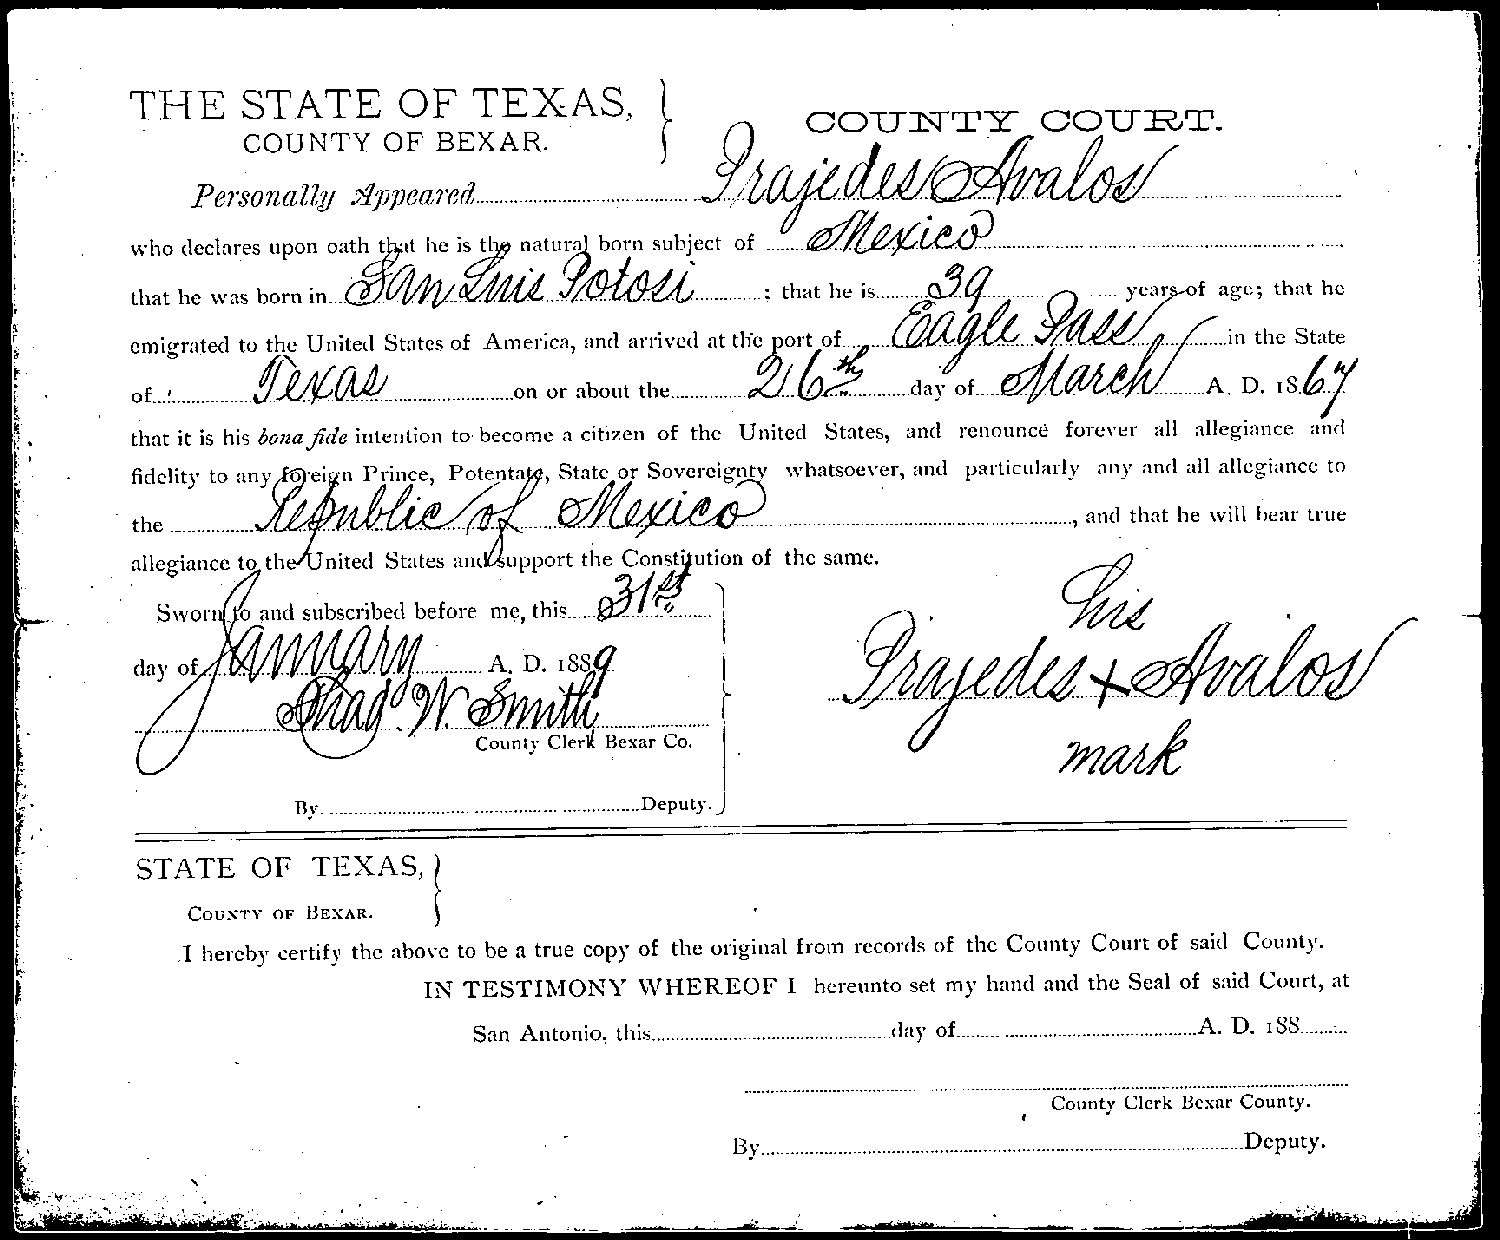 THE STATE OF TEXAS,
COUNTY OF BEXAR.
COUNTY COURT.
Personally Appeared Prajedes Avalos
who declares upon oath that he is the natural born subject of Mexico
that he was born in San Luis Potosi ; that he is 39 years of age; that he
emigrated to the United States of America, and arrived at the port of Eagle Pass, in the State
of Texas on or about the 26th day of March A. D. 1867
that it is his bona fide intention to become a citizen of the United States, and renounce forever all allegiance and
fidelity to any foreign Prince, Potentate, State or Sovereignty whatsoever, and particularly any and all allegiance to
the Republic of Mexico, and that he will bear true
allegiance to the United States and support the Constitution of the same.
Sworn to and subscribed before me, this 31st
day of January A. D. 1889
Thad. W. Smith
County Clerk Bexar Co.
By Deputy.
his
Prajedes + Avalos
mark
STATE OF TEXAS,
COUNTY OF BEXAR.
I hereby certify the above to be a true copy of the original from records of the County Court of said County.
IN TESTIMONY WHEREOF I hereunto set my hand and the Seal of said Court, at
San Antonio, this day of A. D. 188
County Clerk Bexar County.
By Deputy.